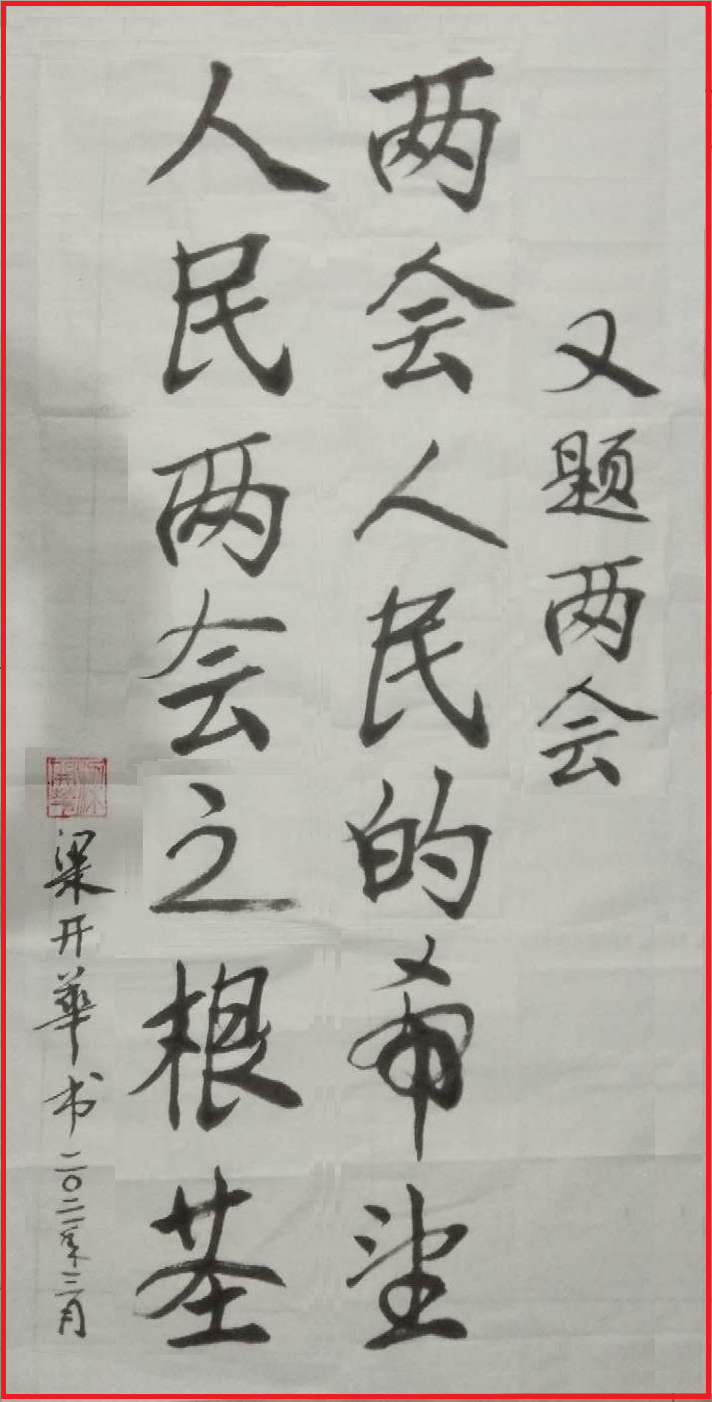 又题两会
两会人民的希望
人民两会之根基
梁开华书二〇二一年三月